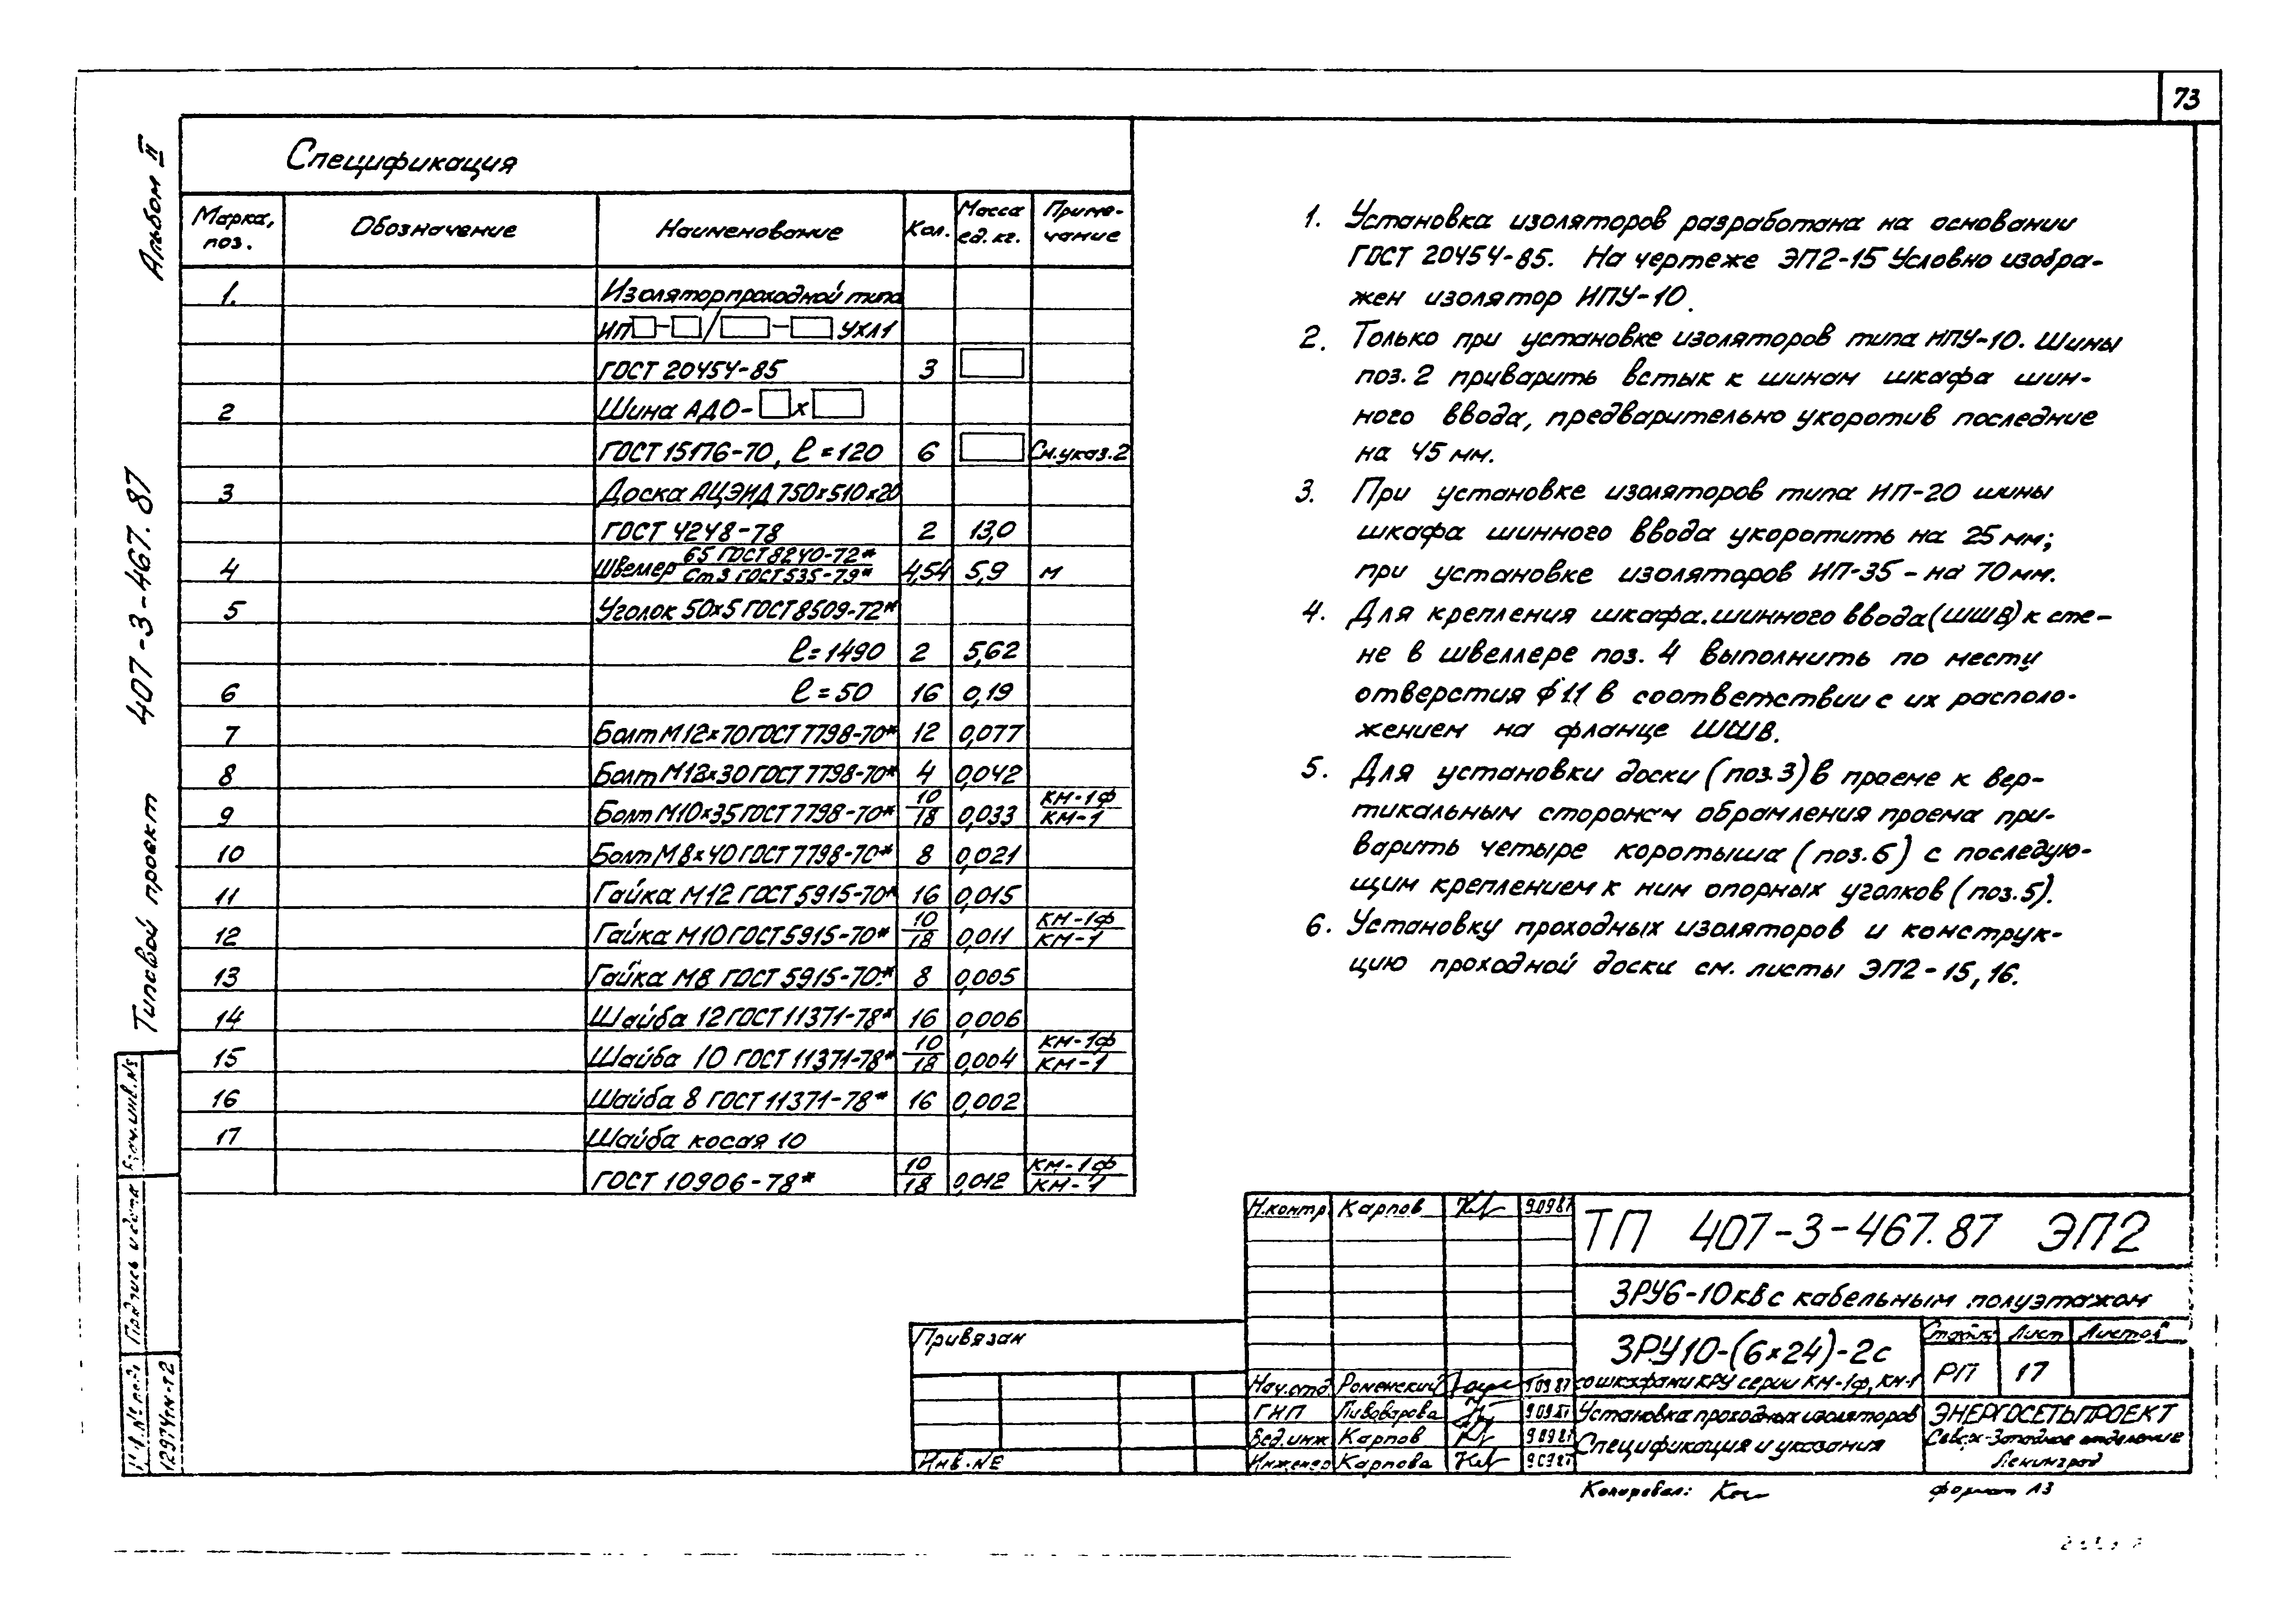 73
Альбом II
Типовой проект 407-3-467.87
Спецификация
Марка, поз. Обозначение Наименование Кол. Масса ед. кг. Приме-чание
1. Изолятор проходной типа
ИП□-□/□-□ УХЛ1
ГОСТ 20454-85 3
2 Шина АДО-□х□
ГОСТ 15176-70, ℓ=120 6 См. указ. 2
3 Доска АЦЭИД 750х510х20
ГОСТ 4248-78 2 13,0
4 Швеллер 65 ГОСТ 8240-72* / Ст3 ГОСТ 535-79* 4,54 5,9 м
5 Уголок 50х5 ГОСТ 8509-72*
ℓ=1490 2 5,62
6 ℓ=50 16 0,19
7 Болт М12х70 ГОСТ 7798-70* 12 0,077
8 Болт М12х30 ГОСТ 7798-70* 4 0,042
9 Болт М10х35 ГОСТ 7798-70* 10/18 0,033 КМ-1Ф/КМ-1
10 Болт М8х40 ГОСТ 7798-70* 8 0,021
11 Гайка М12 ГОСТ 5915-70* 16 0,015
12 Гайка М10 ГОСТ 5915-70* 10/18 0,011 КМ-1Ф/КМ-1
13 Гайка М8 ГОСТ 5915-70* 8 0,005
14 Шайба 12 ГОСТ 11371-78* 16 0,006
15 Шайба 10 ГОСТ 11371-78* 10/18 0,004 КМ-1Ф/КМ-1
16 Шайба 8 ГОСТ 11371-78* 16 0,002
17 Шайба косая 10
ГОСТ 10906-78* 10/18 0,012 КМ-1Ф/КМ-1
1. Установка изоляторов разработана на основании
ГОСТ 20454-85. На чертеже ЭП2-15 Условно изобра-
жен изолятор ИПУ-10.
2. Только при установке изоляторов типа ИПУ-10. Шины
поз. 2 приварить встык к шинам шкафа шин-
ного ввода, предварительно укоротив последние
на 45 мм.
3. При установке изоляторов типа ИП-20 шины
шкафа шинного ввода укоротить на 25 мм;
при установке изоляторов ИП-35 - на 70 мм.
4. Для крепления шкафа шинного ввода (ШШВ) к сте-
не в швеллере поз. 4 выполнить по месту
отверстия ϕ 11 в соответствии с их располо-
жением на фланце ШШВ.
5. Для установки доски (поз. 3) в проеме к вер-
тикальным сторонам обрамления проема при-
варить четыре коротыша (поз. 6) с последую-
щим креплением к ним опорных уголков (поз. 5).
6. Установку проходных изоляторов и конструк-
цию проходной доски см. листы ЭП2-15, 16.
Взам. инв. №
Подпись и дата
Инв. № подл.
12974тм-т2
Привязан
Инв. №
Н.контр. Карпов 9.09.87
Нач. отд. Роменский
ГИП Пивоварова 9.09.87
Вед. инж. Карпов 9.09.87
Инженер Карпова 9.09.87
ТП 407-3-467.87 ЭП2
ЗРУ6-10кВ с кабельным полуэтажом
ЗРУ10-(6х24)-2с
со шкафами КРУ серии КМ-1ф, КМ-1
Стадия Лист Листов
РП 17
Установка проходных изоляторов
Спецификация и указания
ЭНЕРГОСЕТЬПРОЕКТ
Северо-Западное отделение
Ленинград
Копировал:
формат А3